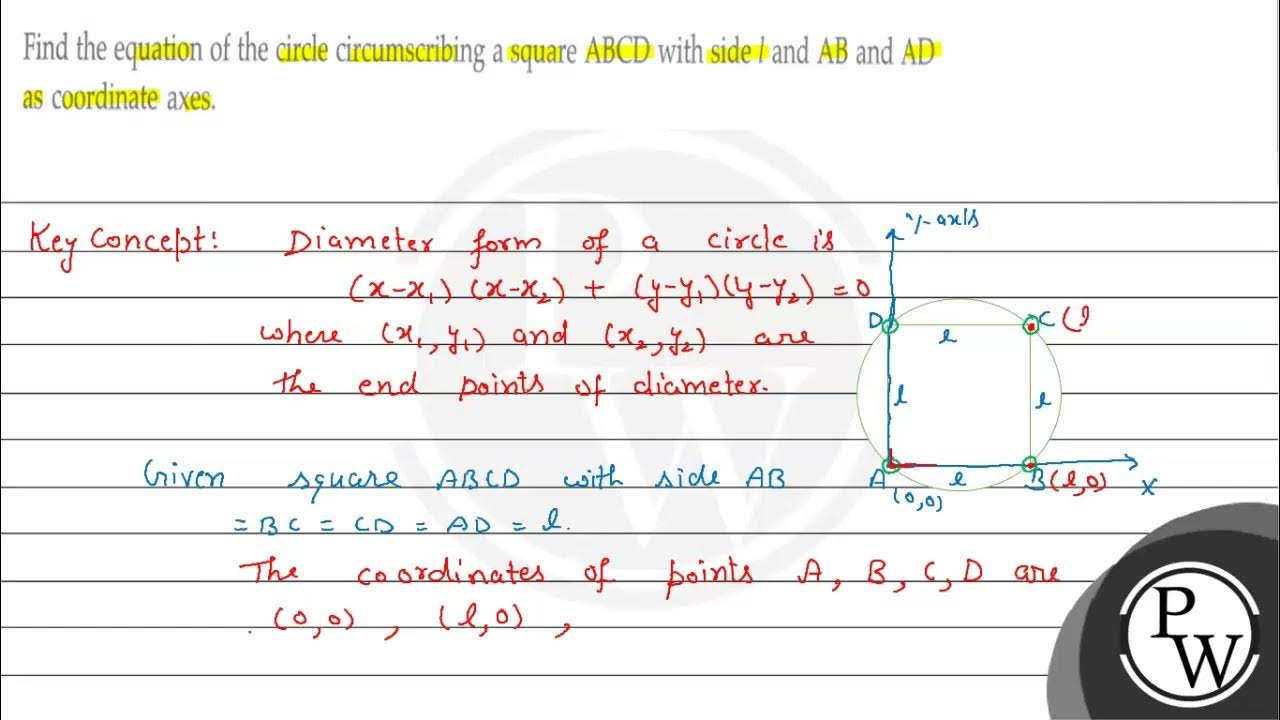 Find the equation of the circle circumscribing a square ABCD with side l and AB and AD
as coordinate axes.
Key Concept: Diameter form of a circle is
(x-x₁) (x-x₂) + (y-y₁)(y-y₂) = 0
where (x₁, y₁) and (x₂, y₂) are
the end points of diameter.
y-axis
D
C (l
l
l
l
A
l
B (l,0)
(0,0)
X
Given square ABCD with side AB
= BC = CD = AD = l.
The coordinates of points A, B, C, D are
(0,0) , (l,0) ,
P
W
PW